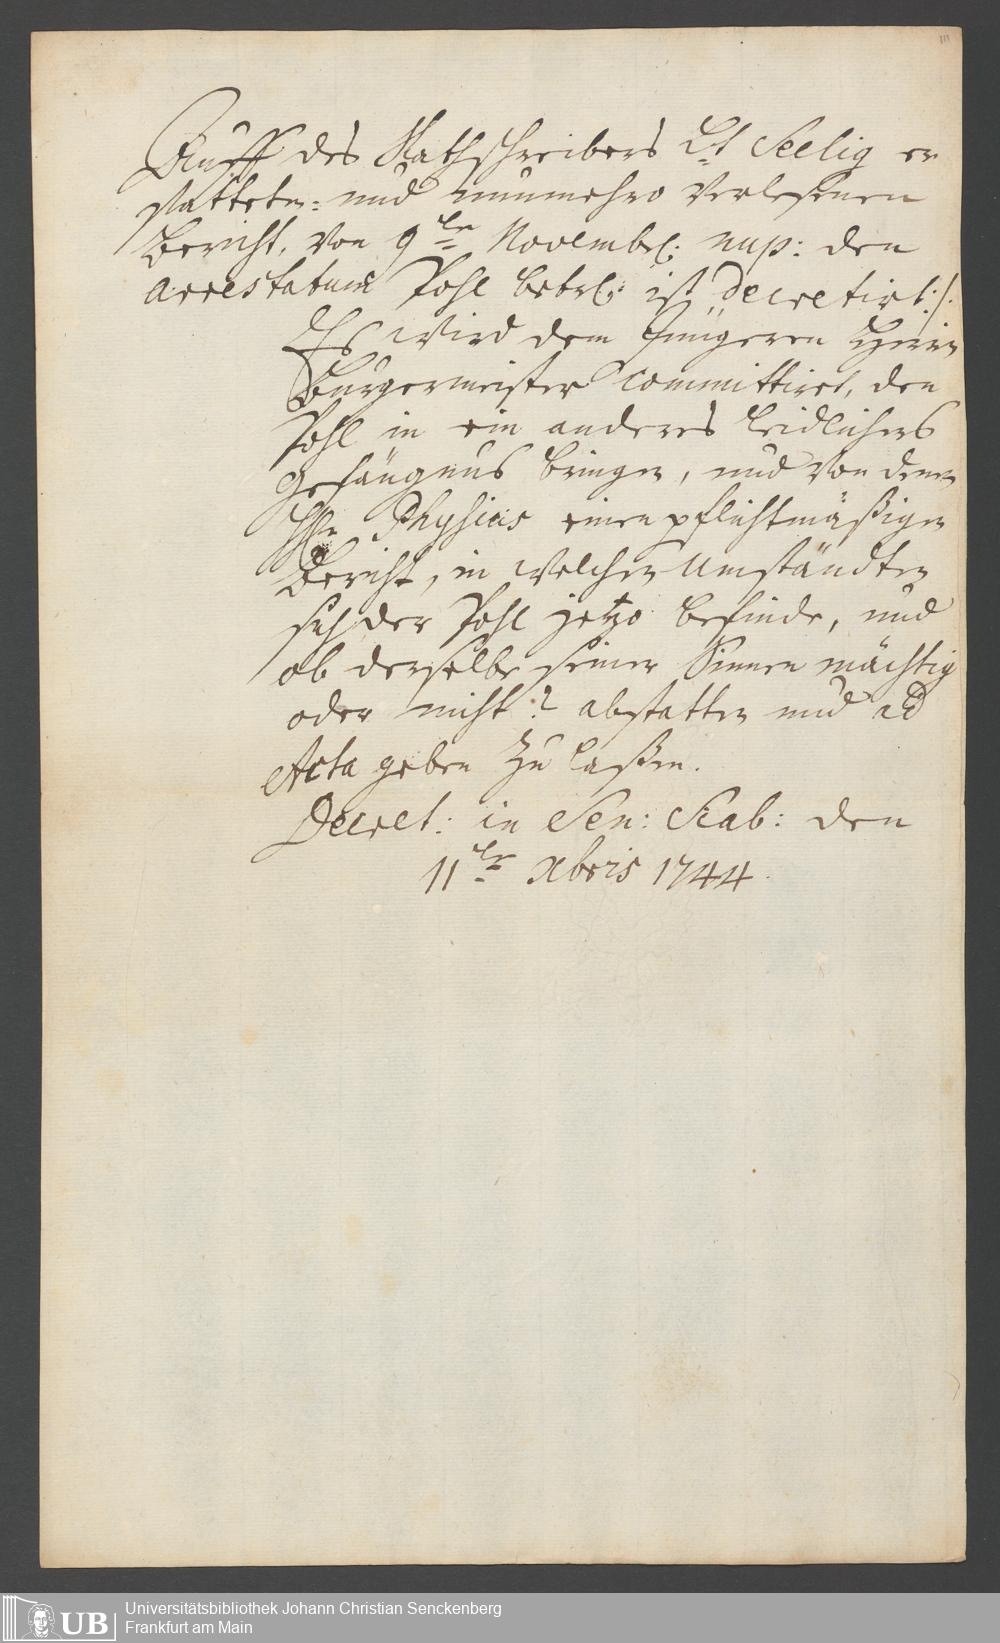 111
Auff des Rathschreibers Lt Seelig er
statteten= und nunmehro verlesenen
Bericht, von 9ten Novembr: nup: den
Arrestatum Pohl betrl: ist decretirt:/:
Es wird dem Jüngeren Herrn
Burgermeister committiret, den
Pohl in ein anderes leidlichers
Gefängnus bringen, und von denen
HHn Physicis einen pflichtmäßigen
Bericht, in welchen Umständten
sich der Pohl jetzo befinde, und
ob derselbe seiner Sinnen mächtig
oder nicht? abstatten und ad
Acta geben zu laßen.
Decret: in Sen: Scab: den
11ten Xbris 1744.
UB
Universitätsbibliothek Johann Christian Senckenberg
Frankfurt am Main